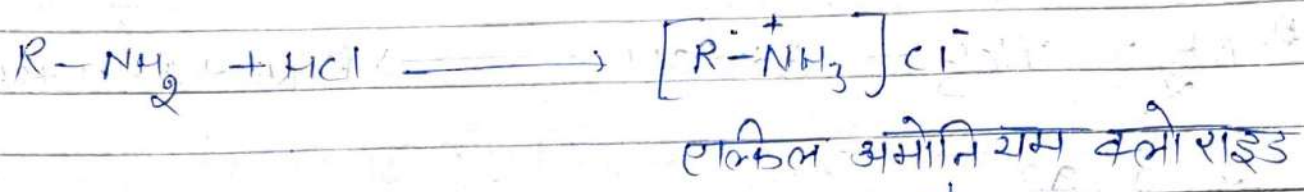 R - NH₂ + HCl ⟶ [R - N⁺H₃] Cl⁻
एल्किल अमोनियम क्लोराइड